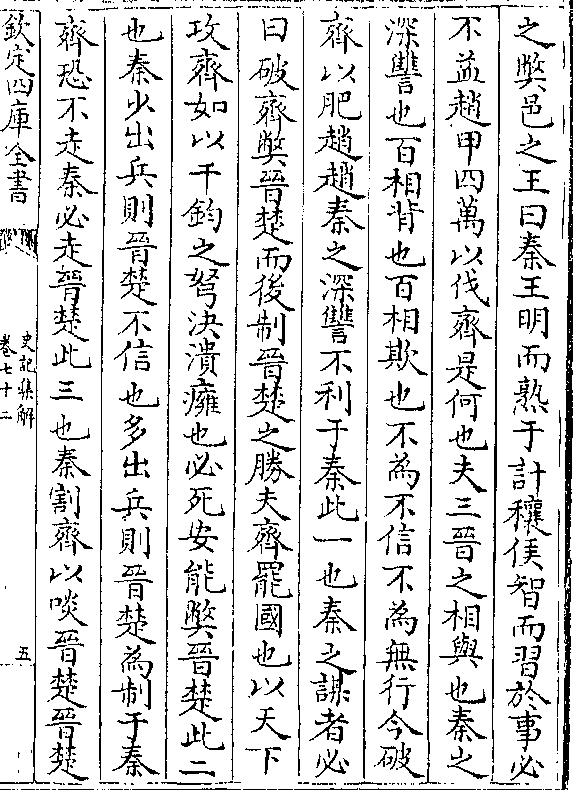 之獘邑之王曰秦王明而熟于計穰侯智而習於事必
不益趙甲四萬以伐齊是何也夫三晉之相與也秦之
深讐也百相背也百相欺也不為不信不為無行今破
齊以肥趙趙秦之深讐不利于秦此一也秦之謀者必
曰破齊獘晉楚而後制晉楚之勝夫齊罷國也以天下
攻齊如以千鈞之弩決潰癰也必死安能獘晉楚此二
也秦少出兵則晉楚不信也多出兵則晉楚為制于秦
齊恐不走秦必走晉楚此三也秦割齊以啖晉楚晉楚
欽定四庫全書
史記集解
卷七十二
五